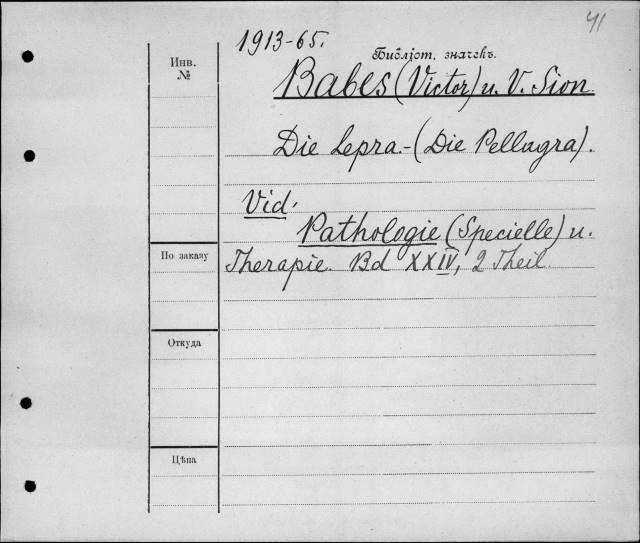 41
1913-65.
Библіот. значекъ.
Инв.
№
Babes (Victor) u. V. Sion
Die Lepra.-(Die Pellagra).
Vid.
Pathologie (Specielle) u.
По заказу
Therapie. Bd XXIV, 2 Theil.
Откуда
Цѣна